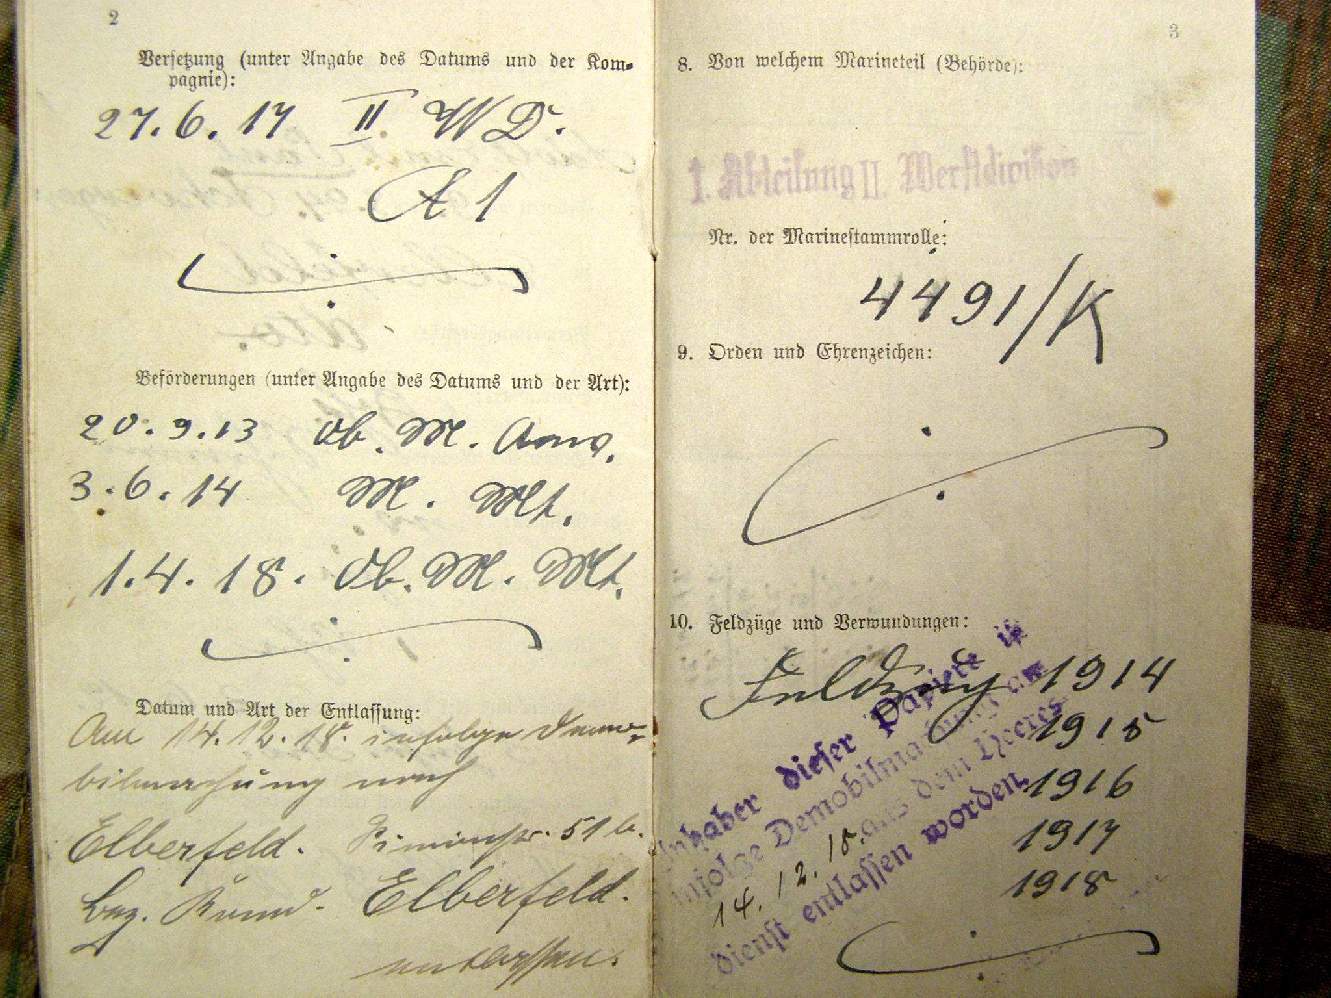 2
Versetzung (unter Angabe des Datums und der Kom-
pagnie):
27.6.17 II W.D.
A. 1
Beförderungen (unter Angabe des Datums und der Art):
20.9.13 Ob. M. Anw.
3.6.14 M. Mt.
1.4.18. Ob. M. Mt.
Datum und Art der Entlassung:
Am 14.12.18. infolge Demo-
bilmachung nach
Elberfeld. 51 b.
Bez. Komd. Elberfeld.
entlassen.
3
8. Von welchem Marineteil (Behörde):
I. Abteilung II. Werftdivision
Nr. der Marinestammrolle:
4491/K
9. Orden und Ehrenzeichen:
10. Feldzüge und Verwundungen:
Feldzug 1914
1915
1916
1917
1918
Inhaber dieser Papiere ist
infolge Demobilmachung am
14.12.18. aus dem Heeres-
dienst entlassen worden.